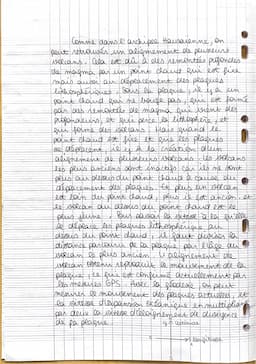 Comme dans l'archipel Hawaïenne, on
peut retrouver un alignement de plusieurs
volcans. Cela est dû à des remontées profondes
de magma par un point chaud qui est fixe
mais aussi au déplacement des plaques
lithosphériques. Sous la plaque, il y a un
point chaud qui ne bouge pas, qui est formé
par des remontées de magma qui vient des
profondeurs et qui perce la lithosphère, et
qui forme des volcans. Mais quand le
point chaud est fixe et que les plaques
se déplacent, il y a la création d'un
alignement de plusieurs volcans. Les volcans
les plus anciens sont inactifs car ils ne sont
plus au dessus du point chaud à cause du
déplacement des plaques. Le plus un volcan
est loin du point chaud, plus il est ancien, et
le volcan au dessus du point chaud est le
plus jeune. Pour savoir la vitesse à laquelle
se déplace les plaques lithosphérique au
dessus du point chaud, il faut diviser la
distance parcouru de la plaque par l'âge du
volcan le plus ancien. L'alignement de
volcan obtenu le mouvement de la
plaque, ce qui est confirmé actuellement par
les mesures GPS. Avec la géodésie, on peut
mesurer le mouvement des plaques actuelles, et
la vitesse d'expansion océanique en multipliant
par deux la vitesse d'éloignement de
de sa plaque.